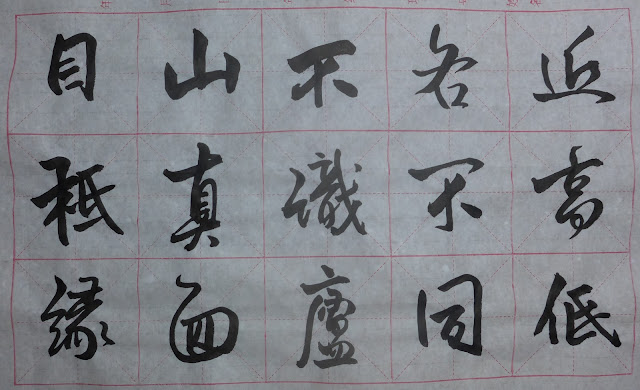 近高低
各不同
不識廬
山真面
目祗緣